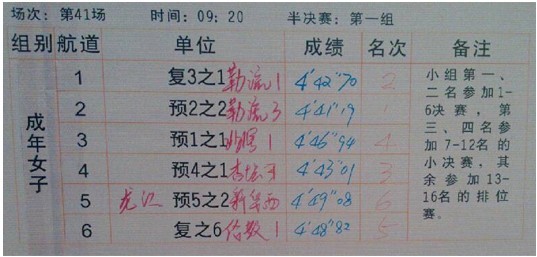 场次：第41场 时间：09：20 半决赛：第一组
组别 航道 单位 成绩 名次 备注
成年女子
1 复3之1 勒流1 4'42"70 2
2 预2之2 勒流3 4'41"19 1
3 预1之1 1 4'46"94 4
4 预4之1 杏坛 4'43"01 3
5 龙江 预5之2 新华西 4'49"08 6
6 复之6 伦教1 4'48"82 5
小组第一、
二名参加1-
6决赛，第
三、四名参
加7-12名的
小决赛，其
余参加13-
16名的排位
赛。